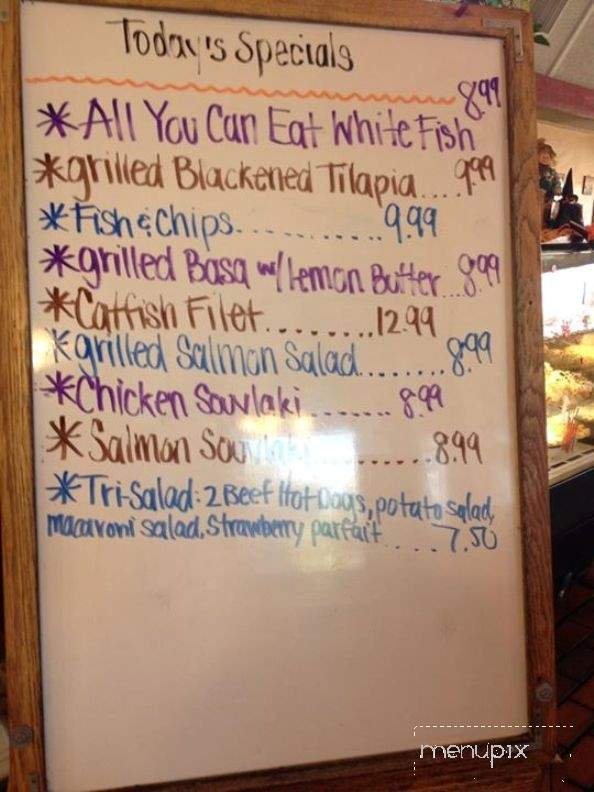 Today's Specials
8.99
*All You Can Eat White Fish
*grilled Blackened Tilapia....9.99
*Fish & Chips...........9.99
*grilled Basa w/ Lemon Butter...8.99
*Catfish Filet........12.99
*grilled Salmon Salad........8.99
*Chicken Souvlaki........8.99
*Salmon Souvlaki.........8.99
*Tri-Salad: 2 Beef Hot Dogs, potato salad,
macaroni salad, strawberry parfait.....7.50
menupix